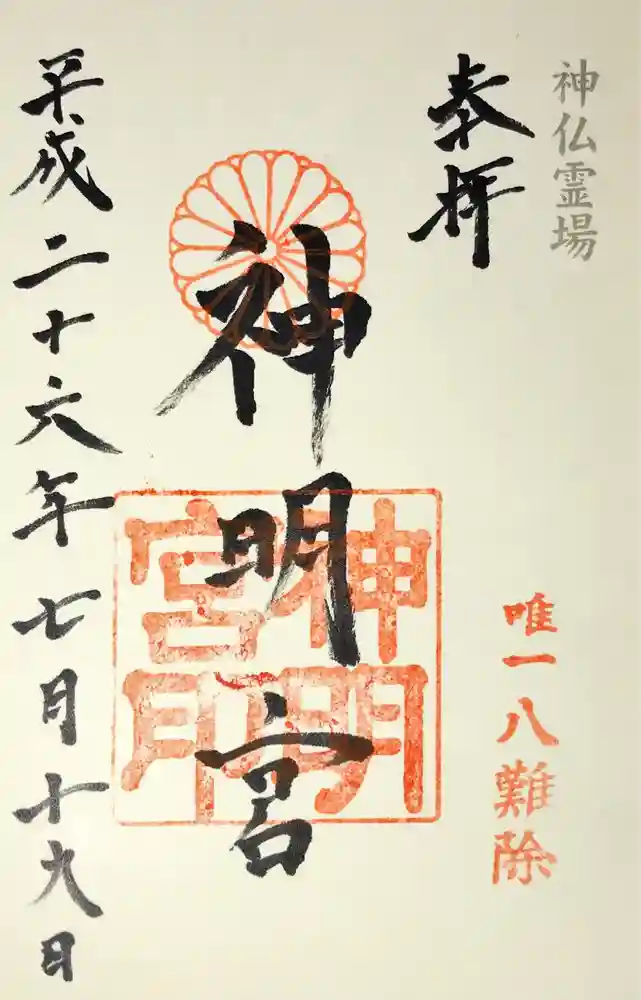 神仏霊場
奉拝
唯一八難除
神明宮
神明
宮印
平成二十六年七月十九日